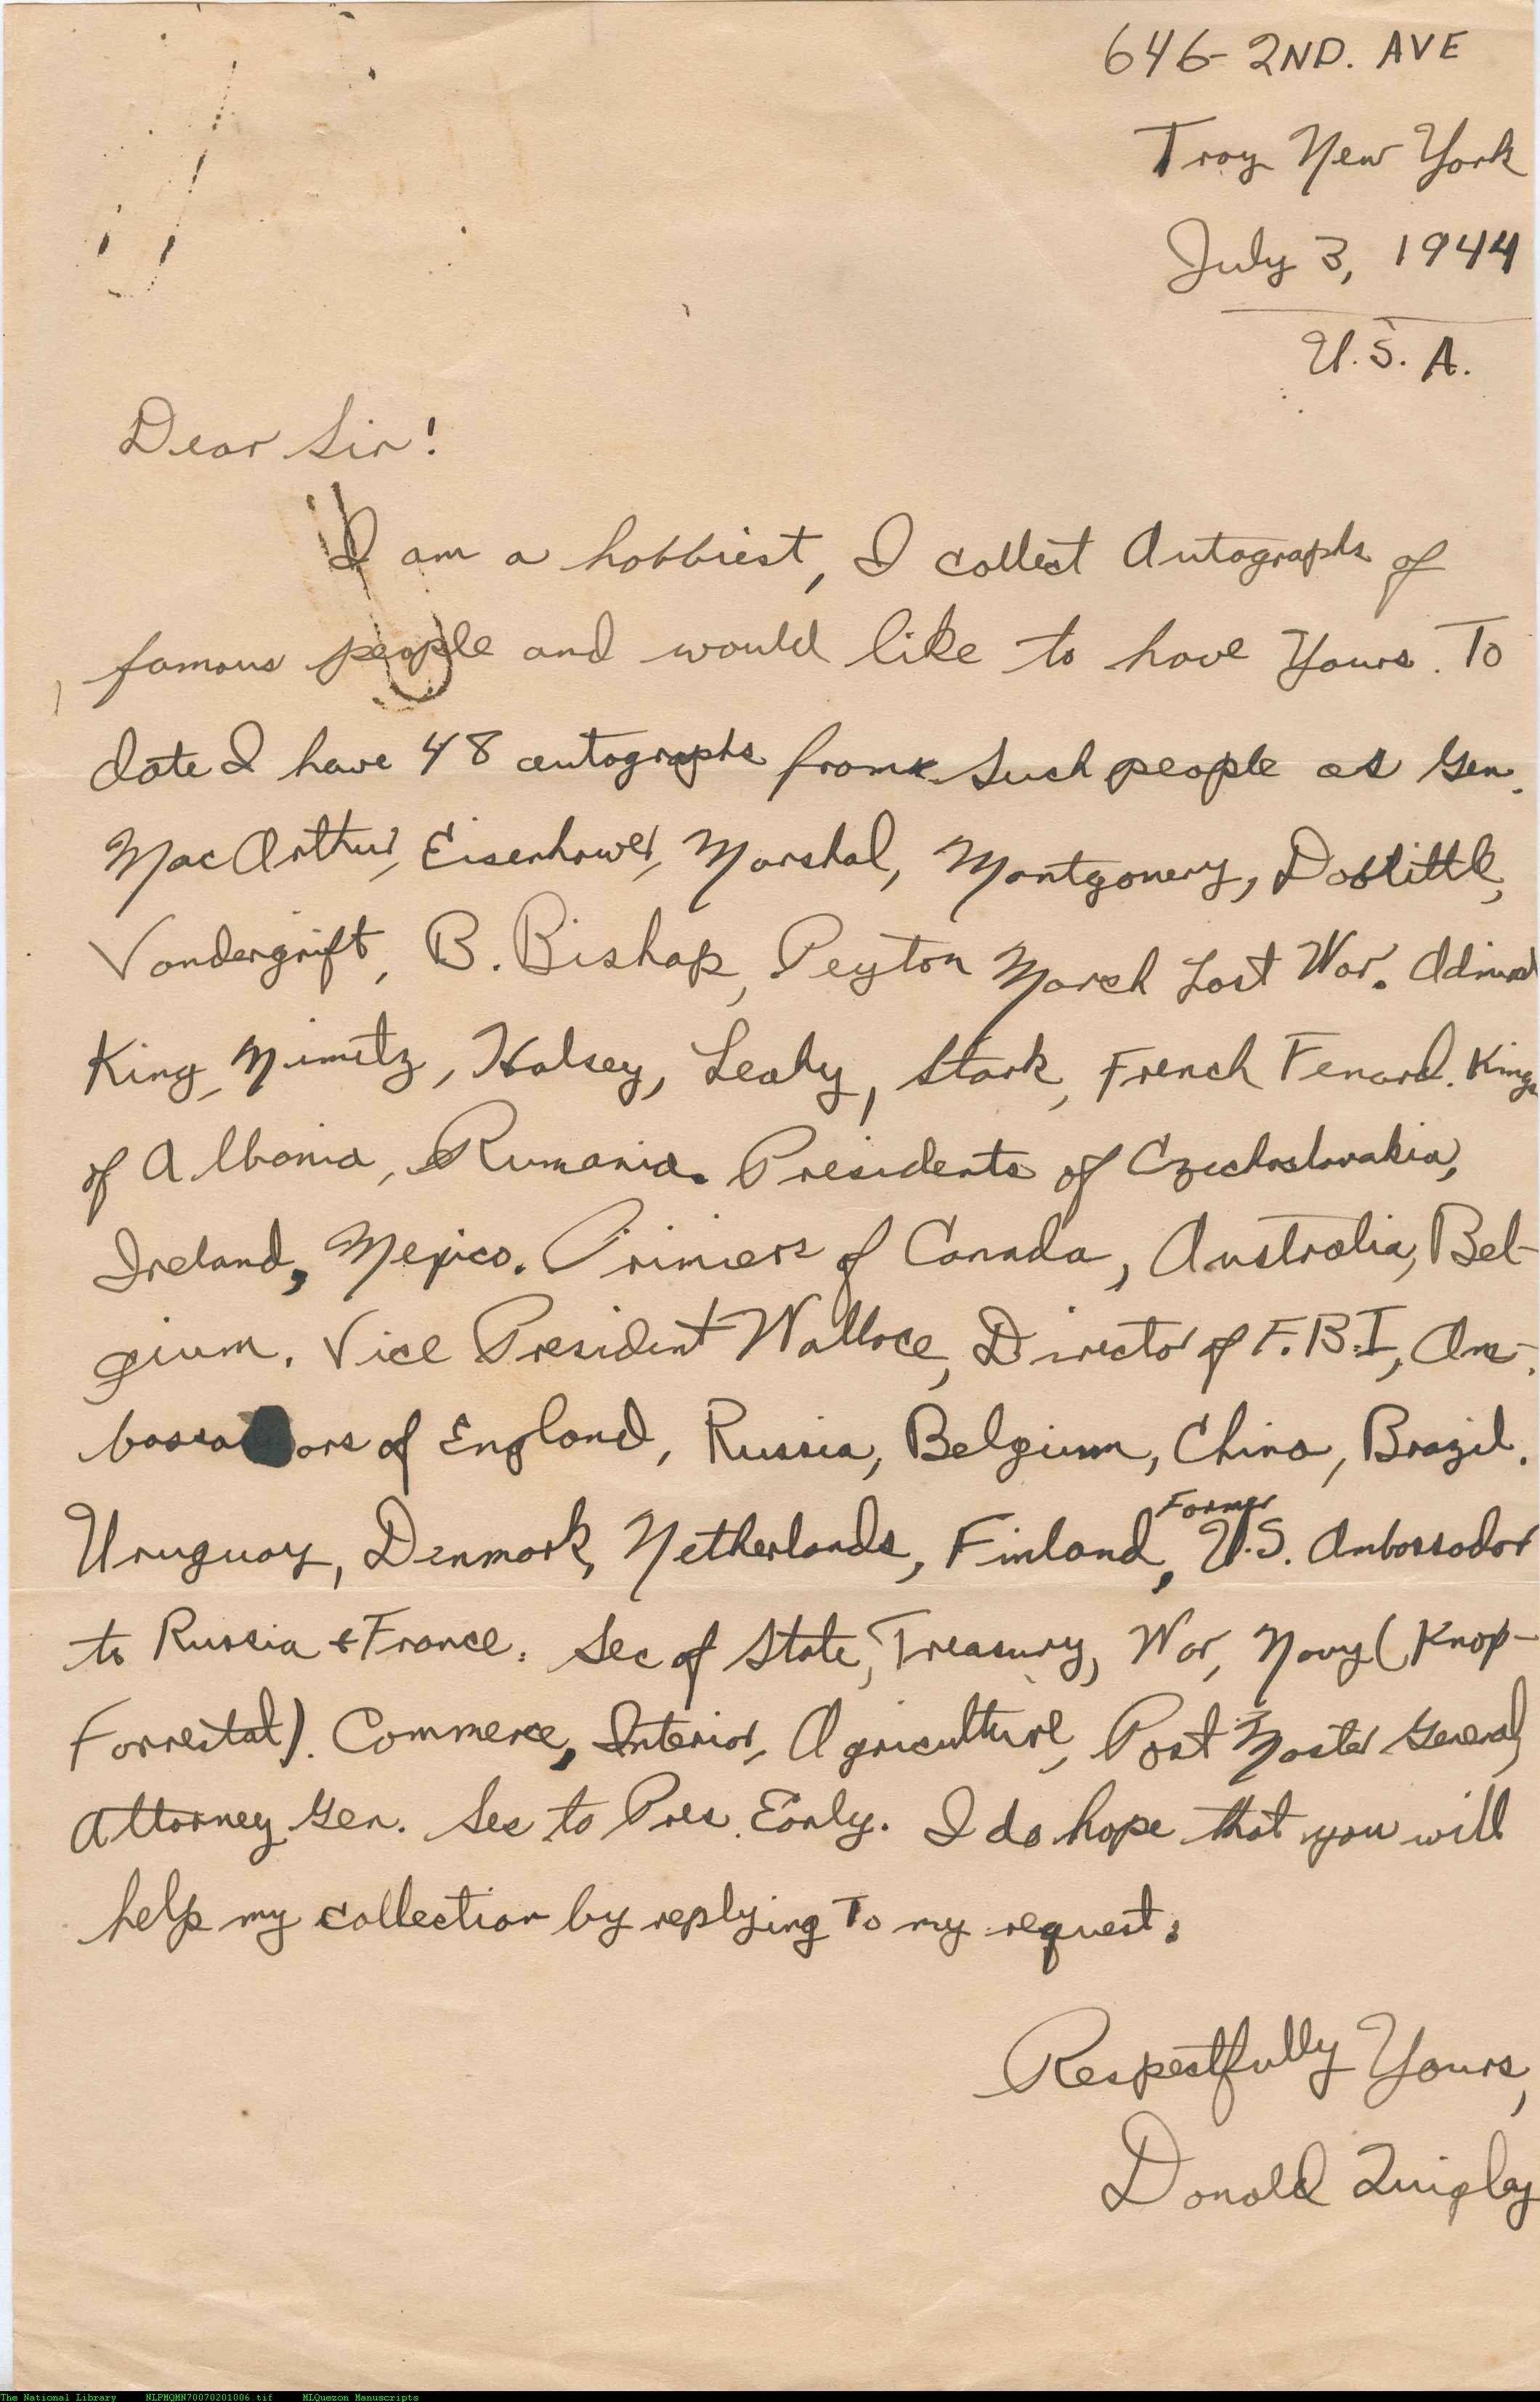 646- 2ND. AVE
Troy New York
July 3, 1944
U.S.A.
Dear Sir!
I am a hobbiest, I collect Autographs of
famous people and would like to have Yours. To
date I have 48 autographs from such people as Gen.
MacArthur, Eisenhower, Marshal, Montgomery, Doolittle,
Vandergrift, B. Bishop, Peyton March Last War. Admiral
King, Nimitz, Halsey, Leahy, Stark, French Fenard. Kings
of Albania, Rumania. Presidents of Czechoslovakia,
Ireland, Mexico. Primiers of Canada, Australia, Bel-
gium. Vice President Wallace, Director of F.B.I, Am-
bassa ors of England, Russia, Belgium, China, Brazil.
Uruguay, Denmark, Netherlands, Finland, Former U.S. Ambassador
to Russia & France. Sec of State, Treasury, War, Navy (Knox-
Forrestal). Commerce, Interior, Agriculture, Post Master General,
Attorney Gen. Sec to Pres. Early. I do hope that you will
help my collection by replying To my request.
Respectfully Yours,
Donald Quigley
The National Library NLPMQMN70070201006.tif MLQuezon Manuscripts